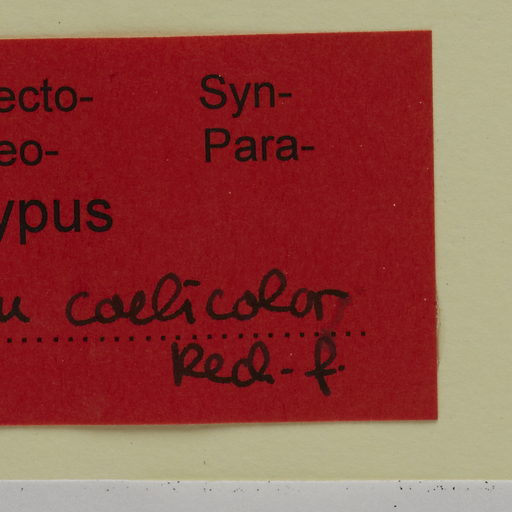 ecto- Syn-
eo- Para-
ypus
u coelicolor
Rech. f.